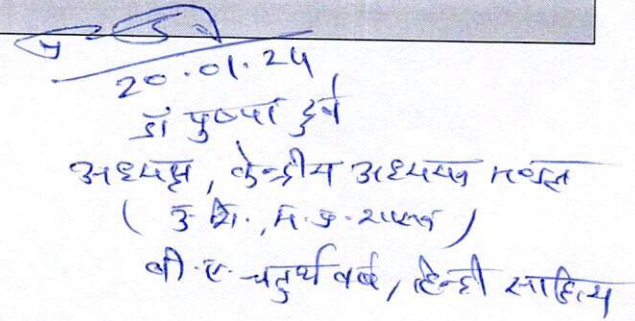 20.01.24
डॉ पुष्पा दुबे
अध्यक्ष, केन्द्रीय अध्ययन मण्डल
( उ. शि., म. प्र. शासन )
बी. ए. चतुर्थ वर्ष, हिन्दी साहित्य